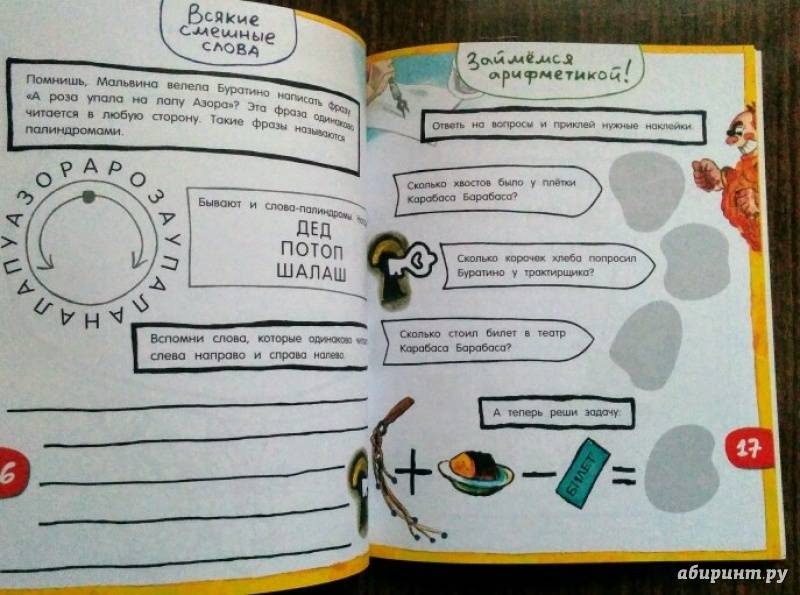 Всякие
смешные
слова
Помнишь, Мальвина велела Буратино написать фразу
«А роза упала на лапу Азора»? Эта фраза одинаково
читается в любую сторону. Такие фразы называются
палиндромами.
АЗОРАРОЗАУПАЛАНАЛАПУ
Бывают и слова-палиндромы.
ДЕД
ПОТОП
ШАЛАШ
Вспомни слова, которые одинаково
слева направо и справа налево.
6
Займёмся
арифметикой!
Ответь на вопросы и приклей нужные наклейки.
Сколько хвостов было у плётки
Карабаса Барабаса?
Сколько корочек хлеба попросил
Буратино у трактирщика?
Сколько стоил билет в театр
Карабаса Барабаса?
А теперь реши задачу:
+ − БИЛЕТ =
17
абиринт.ру